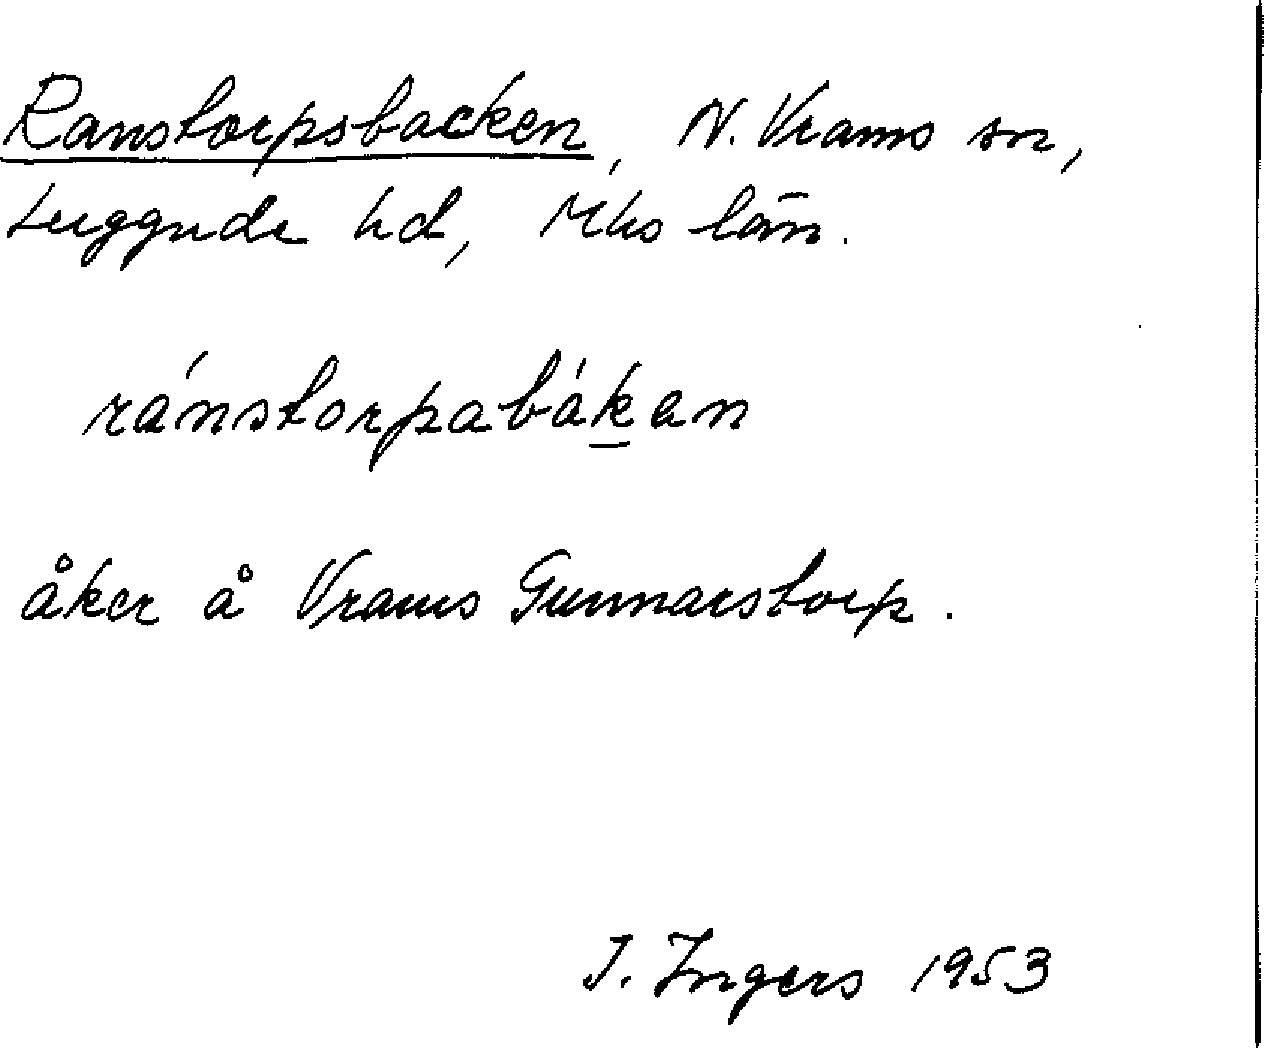 Ranstorpsbacken, N. Vrams sn,
Luggude hd, Mhs län.
ránstorpabákan
åker å Vrams Gunnarstorp.
I. Ingers 1953